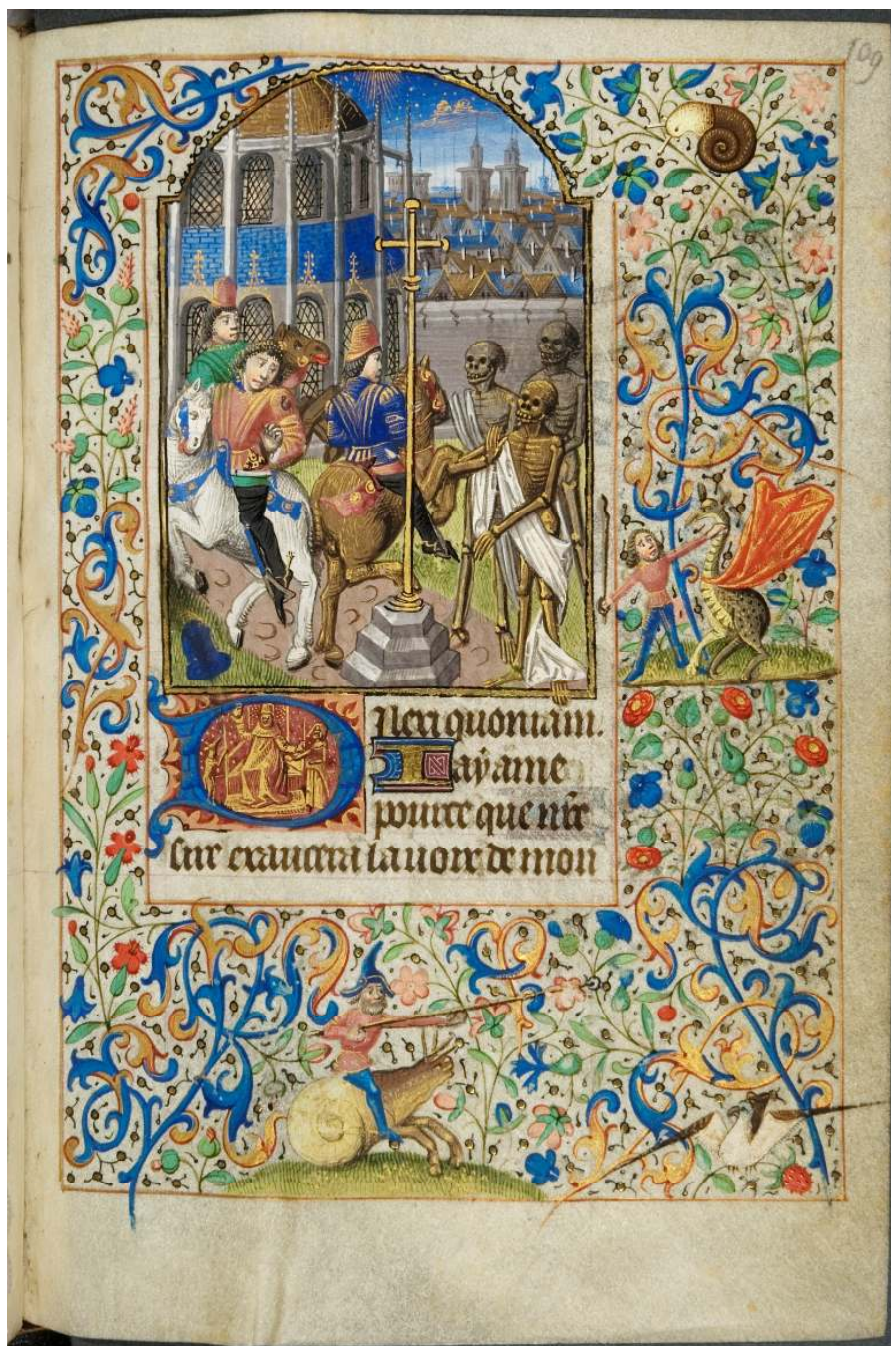 109
Dilexi quoniam.
Jay ame
pource que nr̃e
sire exaucera la uoix de mon